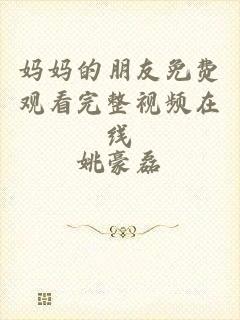 妈妈的朋友免费
观看完整视频在
线
姚豪磊